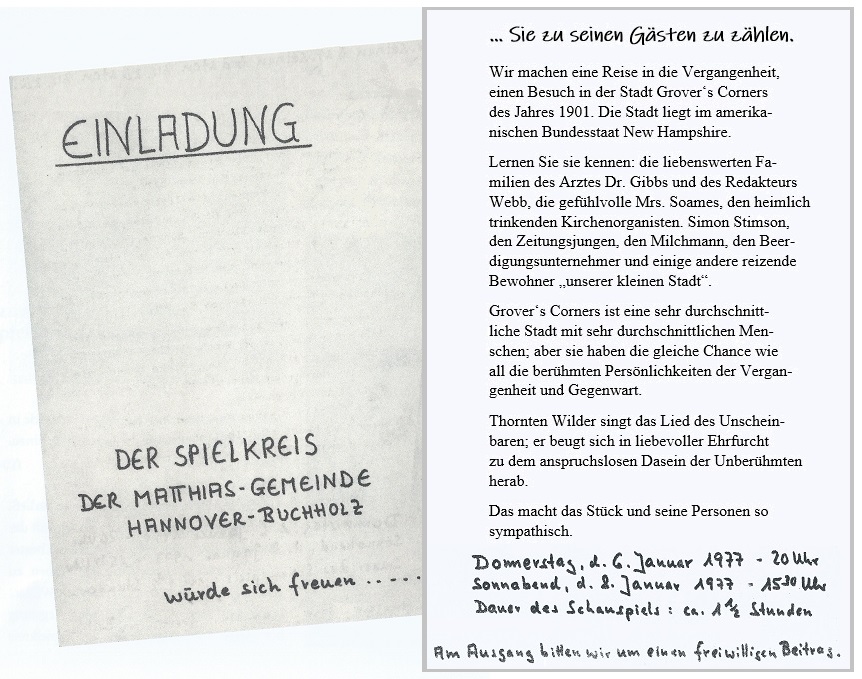 EINLADUNG
DER SPIELKREIS
DER MATTHIAS-GEMEINDE
HANNOVER-BUCHHOLZ
würde sich freuen .....
... Sie zu seinen Gästen zu zählen.
Wir machen eine Reise in die Vergangenheit,
einen Besuch in der Stadt Grover‘s Corners
des Jahres 1901. Die Stadt liegt im amerika-
nischen Bundesstaat New Hampshire.
Lernen Sie sie kennen: die liebenswerten Fa-
milien des Arztes Dr. Gibbs und des Redakteurs
Webb, die gefühlvolle Mrs. Soames, den heimlich
trinkenden Kirchenorganisten. Simon Stimson,
den Zeitungsjungen, den Milchmann, den Beer-
digungsunternehmer und einige andere reizende
Bewohner „unserer kleinen Stadt“.
Grover‘s Corners ist eine sehr durchschnitt-
liche Stadt mit sehr durchschnittlichen Men-
schen; aber sie haben die gleiche Chance wie
all die berühmten Persönlichkeiten der Vergan-
genheit und Gegenwart.
Thornten Wilder singt das Lied des Unschein-
baren; er beugt sich in liebevoller Ehrfurcht
zu dem anspruchslosen Dasein der Unberühmten
herab.
Das macht das Stück und seine Personen so
sympathisch.
Donnerstag, d. 6. Januar 1977 - 20 Uhr
Sonnabend, d. 8. Januar 1977 - 15³⁰ Uhr
Dauer des Schauspiels : ca. 1½ Stunden
Am Ausgang bitten wir um einen freiwilligen Beitrag.